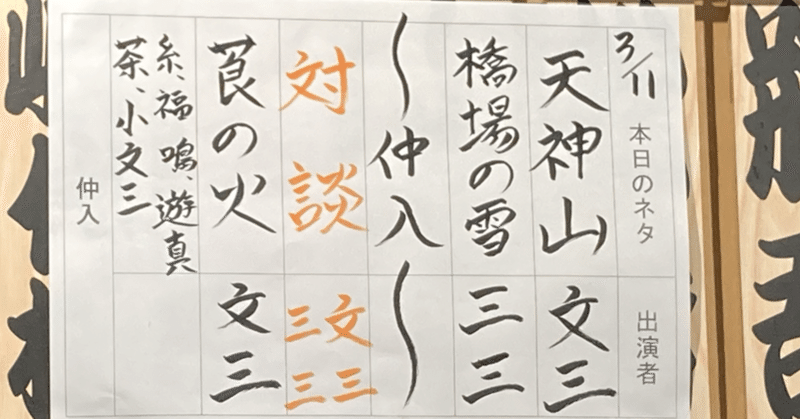 3/11 本日のネタ 出演者
天神山 文三
橋場の雪 三三
〜仲入〜
対談 文三
三三
莨の火 文三
糸、福 鳴、遊真
茶、小文三
仲入